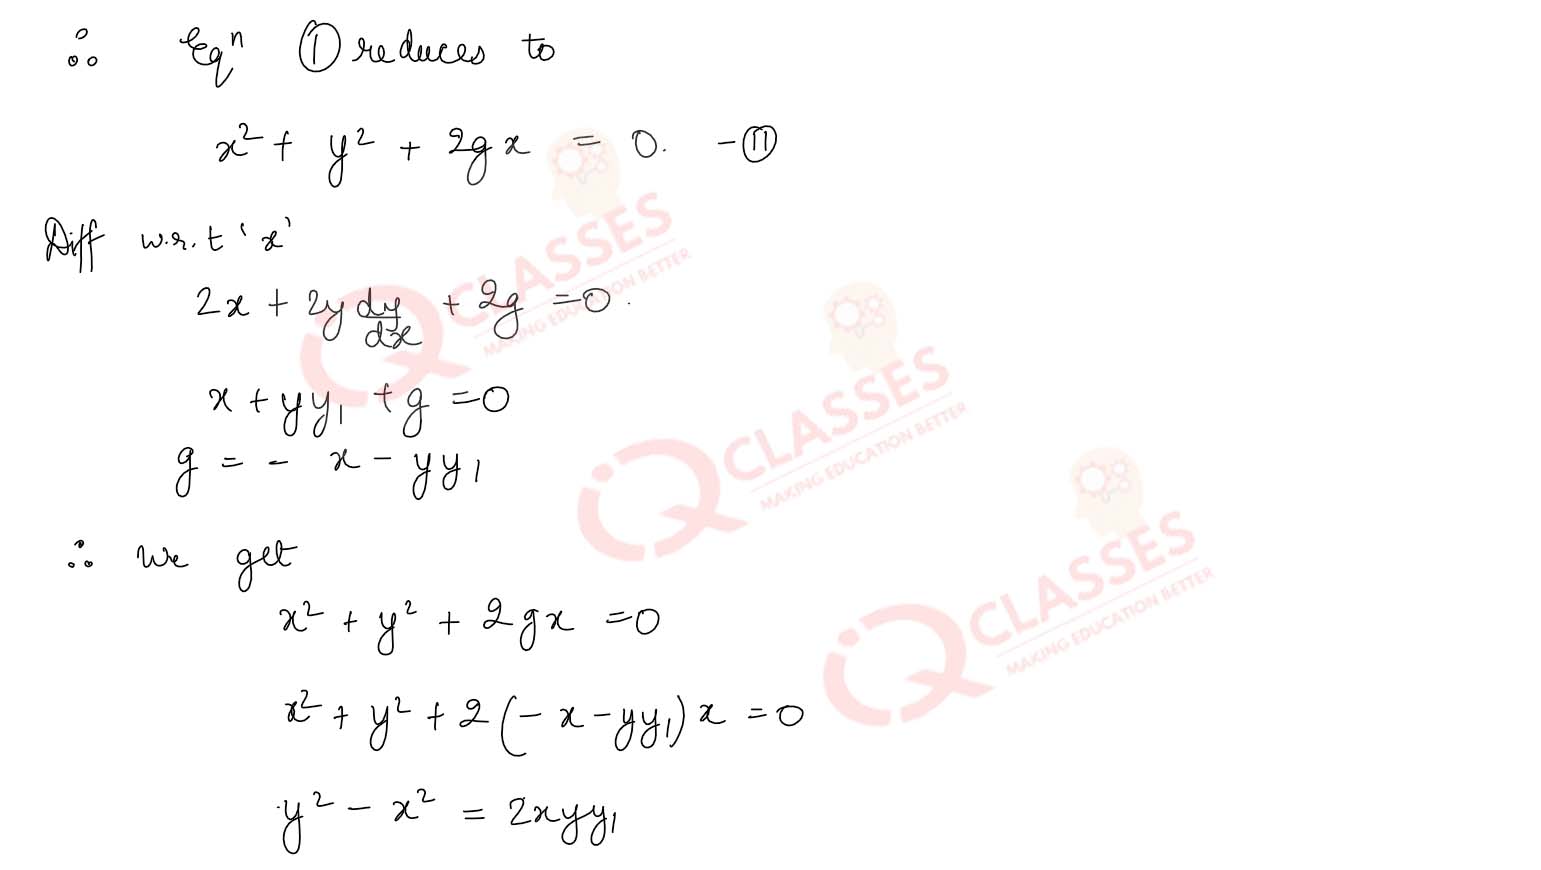 ∴ Eqⁿ ① reduces to
x² + y² + 2gx = 0. -⑪
Diff w.r.t 'x'
2x + 2y dy/dx + 2g = 0.
x + yy₁ + g = 0
g = - x - yy₁
∴ We get
x² + y² + 2gx = 0
x² + y² + 2(-x - yy₁)x = 0
y² - x² = 2xyy₁
CLASSES
MAKING EDUCATION BETTER
CLASSES
MAKING EDUCATION BETTER
CLASSES
MAKING EDUCATION BETTER